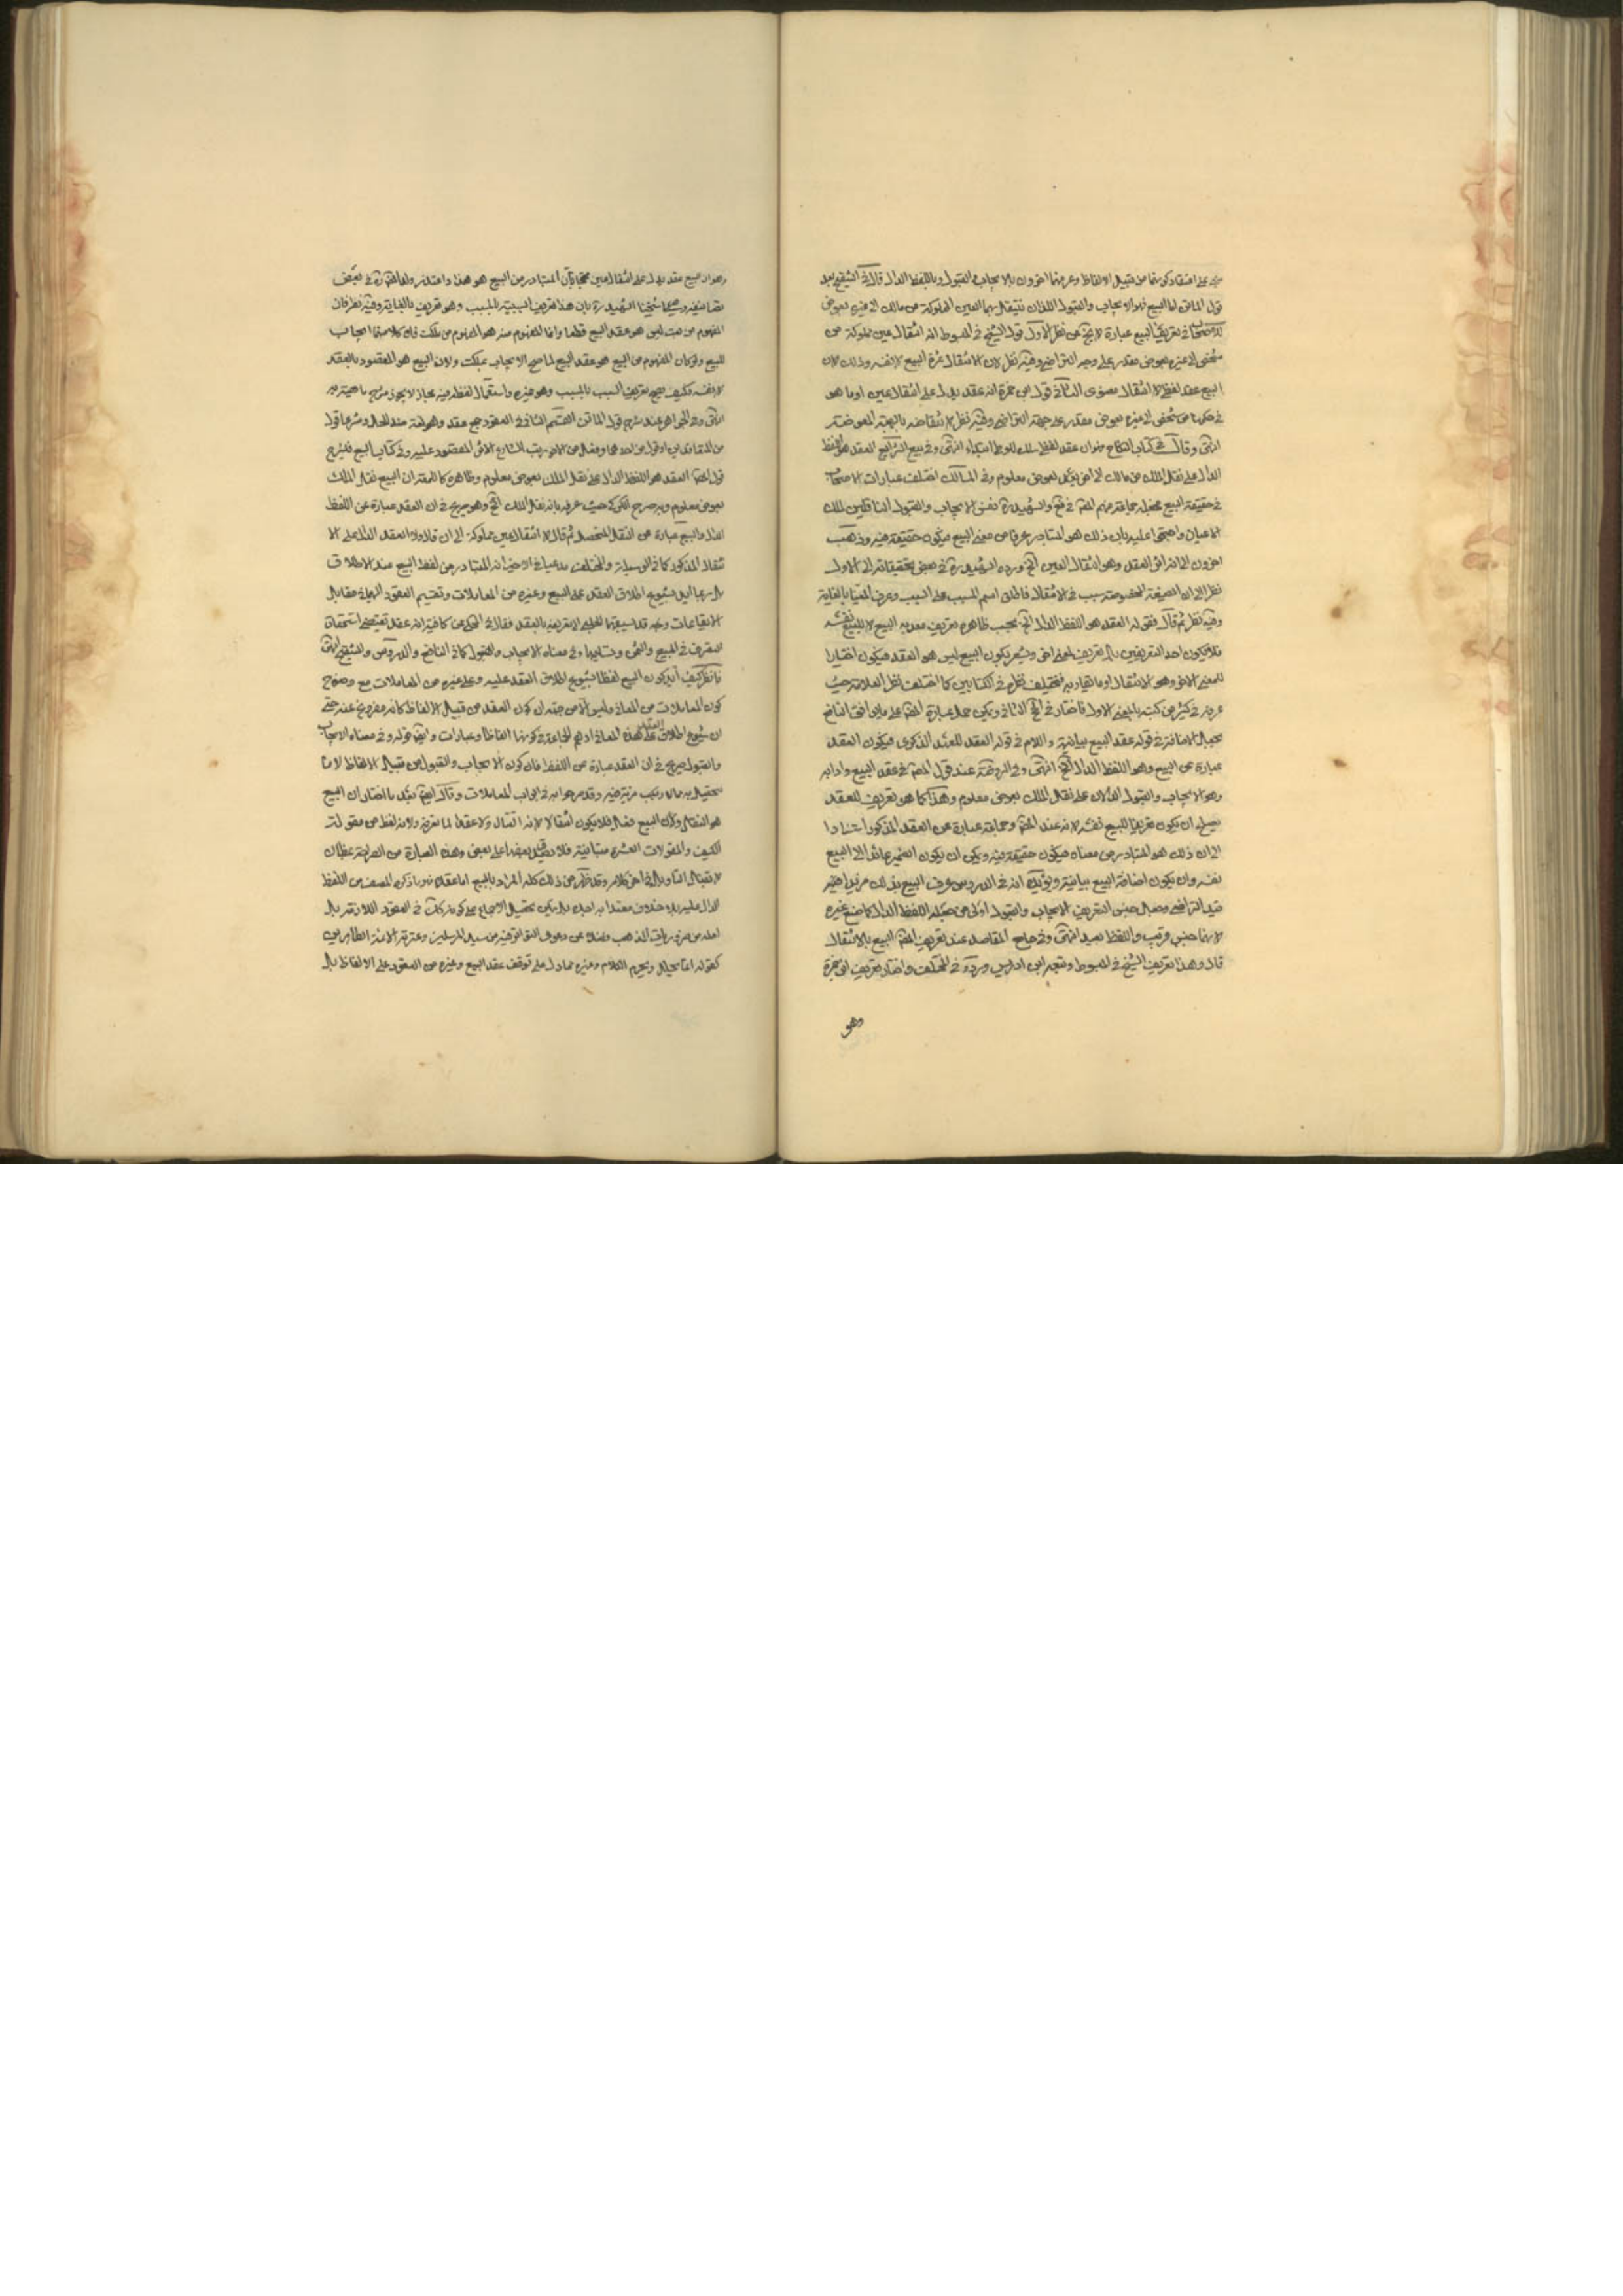 على اعتقاد كونها من قبيل الالفاظ وعرفها اخرون بالايجاب والقبول وباللفظ الدال قال في التنقيح بعد
قول الماتن اما البيع فهو الايجاب والقبول اللذان تنتقل بهما العين المملوكة من مالك الى غيره بعوض
للاصحاب في تعريف البيع عبارة لا تخ عن نظر الاول قول الشيخ في المبسوط انه انتقال عين مملوكة من
شخص الى غيره بعوض مقدر على وجه التراضي وفيه نظر لان الانتقال ثمرة البيع لا نفسه وذلك لان
البيع عقد لفظي لا انتقال معنوي الثاني قول ابن حمزة انه عقد يدل على انتقال عين او ما هو
في حكمها من شخص الى غيره بعوض مقدر على جهة التراضي وفيه نظر لانتقاضه بالهبة المعوضة
انتهى وقال في كتاب النكاح عقد لفظي انتهى وفي بيع الشرائع العقد هو اللفظ
الدال على نقل الملك من مالك الى اخر بعوض معلوم وفي المسالك اختلف عبارات الاصحاب
في حقيقة البيع فجعله جماعة منهم المص في فع والشهيد ره نفس الايجاب والقبول الناقلين لملك
الاعيان واحتجوا عليه بان ذلك هو المتبادر عرفا من معنى البيع فيكون حقيقة فيه وذهب
اخرون الى انه اثر العقد وهو انتقال العين الخ ورده الشهيد ره في بعض تحقيقاته الى الاول
نظرا الى ان الصيغة المخصوصة سبب في الانتقال فاطلق اسم المسبب على السبب وعرف المغيا بالغاية
وفيه نظر ثم قال فقوله العقد هو اللفظ الدال الخ بحسب ظاهره تعريف لعقد البيع لا للبيع نفسه
فلا يكون احد التعريفين بل تعريف لمعنى اخر ويشعر بكون البيع ليس هو العقد فيكون اختيارا
للمعنى الاخر وهو الانتقال او ما يقاربه فيختلف نظره في الكتابين كما اختلف نظر العلامة حيث
عرفه في كثير من كتبه بالمعنى الاول فاختار في الخ الثاني ويمكن حمل عبارة المص على ما يوافق النافع
بجعل الاضافة في قوله عقد البيع بيانية واللام في قوله العقد للعهد الذكري فيكون العقد
عبارة عن البيع وهو اللفظ الدال الخ انتهى وفي الروضة عند قول المص في عقد البيع وادابه
وهو الايجاب والقبول الدالان على نقل الملك بعوض معلوم وهذا كما هو تعريف للعقد
يصلح ان يكون تعريفا للبيع نفسه لانه عند المص وجماعة عبارة عن العقد المذكور استنادا
الى ان ذلك هو المتبادر من معناه فيكون حقيقة فيه ويمكن ان يكون الضمير عائدا الى البيع
نفسه وان يكون اضافة البيع بيانية ويؤيده انه في الدروس عرف البيع بذلك مزيدا فيه
قيد التراضي وجعل جنس التعريف الايجاب والقبول اولى من جعله اللفظ الدال كما صنع غيره
لانهما جنس قريب واللفظ بعيد انتهى وفي جامع المقاصد عند تعريف المص البيع بالانتقال
قال وهذا تعريف الشيخ في المبسوط وتبعه ابن ادريس ورده في المختلف واختار تعريف ابن حمزة
وهو
وهو ان البيع عقد يدل على انتقال عين محتجا بان المتبادر من البيع هو هذا واعتذر في بعض
تصانيفه شيخنا الشهيد ره بان هذا تعريف السببية بالمسبب وهو تعريف بالغاية وفيه نظر فان
المفهوم من بعت ليس هو عقد البيع قطعا وانما المفهوم منه هو المفهوم من ملكت فان كلا منهما ايجاب
للبيع ولو كان المفهوم من البيع هو عقد البيع لما صح الايجاب بملكت ولان البيع هو المقصود بالعقد
لا نفسه وكيف يصح تعريف السبب بالمسبب وهو غيره واستعمال لفظه فيه مجاز لا يجوز
انتهى وفي الجواهر عند شرح قول الماتن القسم الثاني في العقود جمع عقد وهو لغة ضد الحل وشرعا قول
من المتعاقدين او قول من احدهما وفعل من الاخر رتب الشارع الاثر المقصود عليه وفي كتاب البيع في شرح
قول المص العقد هو اللفظ الدال على نقل الملك بعوض معلوم وظاهره كالمقتدر ان البيع نقل الملك
بعوض معلوم وبه صرح الكركي حيث عرفه بانه نقل الملك الخ وهو صريح في ان العقد عبارة عن اللفظ
الدال والبيع عبارة عن النقل المتحصل ثم قال لا انتقال عين مملوكة الى ان قال ولا العقد الدال على الا
نتقال المذكور كما في الوسيلة والمختلف مدعيا في الاخير انه المتبادر من لفظ البيع عند الاطلاق
بل ربما ايد بشيوع اطلاق العقد على البيع وغيره من المعاملات وتقسيم العقود اليها في مقابل
الايقاعات الحلبي الى تعريفه بالعقد فقال في المحكي عن كافيه انه عقد يقتضي استحقاق
التصرف في المبيع والثمن وتسليمهما وفي معناه الايجاب والقبول كما في النافع والدروس والتنقيح انتهى
فانظر كيف ايد كون البيع لفظا بشيوع اطلاق العقد عليه وعلى غيره من المعاملات مع وضوح
كون المعاملات من المعاني وليس الا من جهة ان كون العقد من قبيل الالفاظ كانه مفروغ عنه حتى
ان شيوع اطلاق العقد على هذه المعاني اوهم الجماعة في كونها الفاظا وعبارات وايض قوله وفي معناه الايجاب
والقبول صريح في ان العقد عبارة عن اللفظ فان كون الايجاب والقبول من قبيل الالفاظ لا
في ابواب المعاملات وقال ايض بعد ما اختار ان البيع
هو النقل ولان البيع فعل فلا يكون انتقالا لانه انفعال ولا عقدا لما تعرفه ولانه لفظ من مقولة
الكيف والمقولات العشرة متباينة فلا يصدق بعضها على بعض وهذه العبارة من الصراحة
لا تقبل التاويل من ذلك كله المراد بالبيع اما عقده فهو ما ذكره المصنف من اللفظ
الدال عليه بلا خلاف معتد به اجده بل يمكن تحصيل الاجماع عليه في العقود اللازمة بل
لعله من ضروريات المذهب من سيد المرسلين وعترته الائمة الطاهرين
كقوله انما يحلل ويحرم الكلام وغيره مما دل على توقف عقد البيع وغيره من العقود على الالفاظ بل